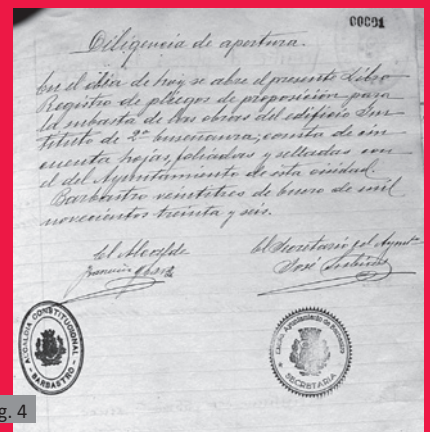 00001
Diligencia de apertura.
En el día de hoy se abre el presente Libro
Registro de pliegos de proposición para
la subasta de las obras del edificio Ins
tituto de 2ª Enseñanza; consta de cin
cuenta hojas, foliadas y selladas con
el del Ayuntamiento de esta ciudad.
Barbastro veintitres de Enero de mil
novecientos treinta y seis.
El Alcalde
El Secretario del Aynto
José
ALCALDIA CONSTITUCIONAL
BARBASTRO
Ayuntamiento de Barbastro
SECRETARIA
g. 4